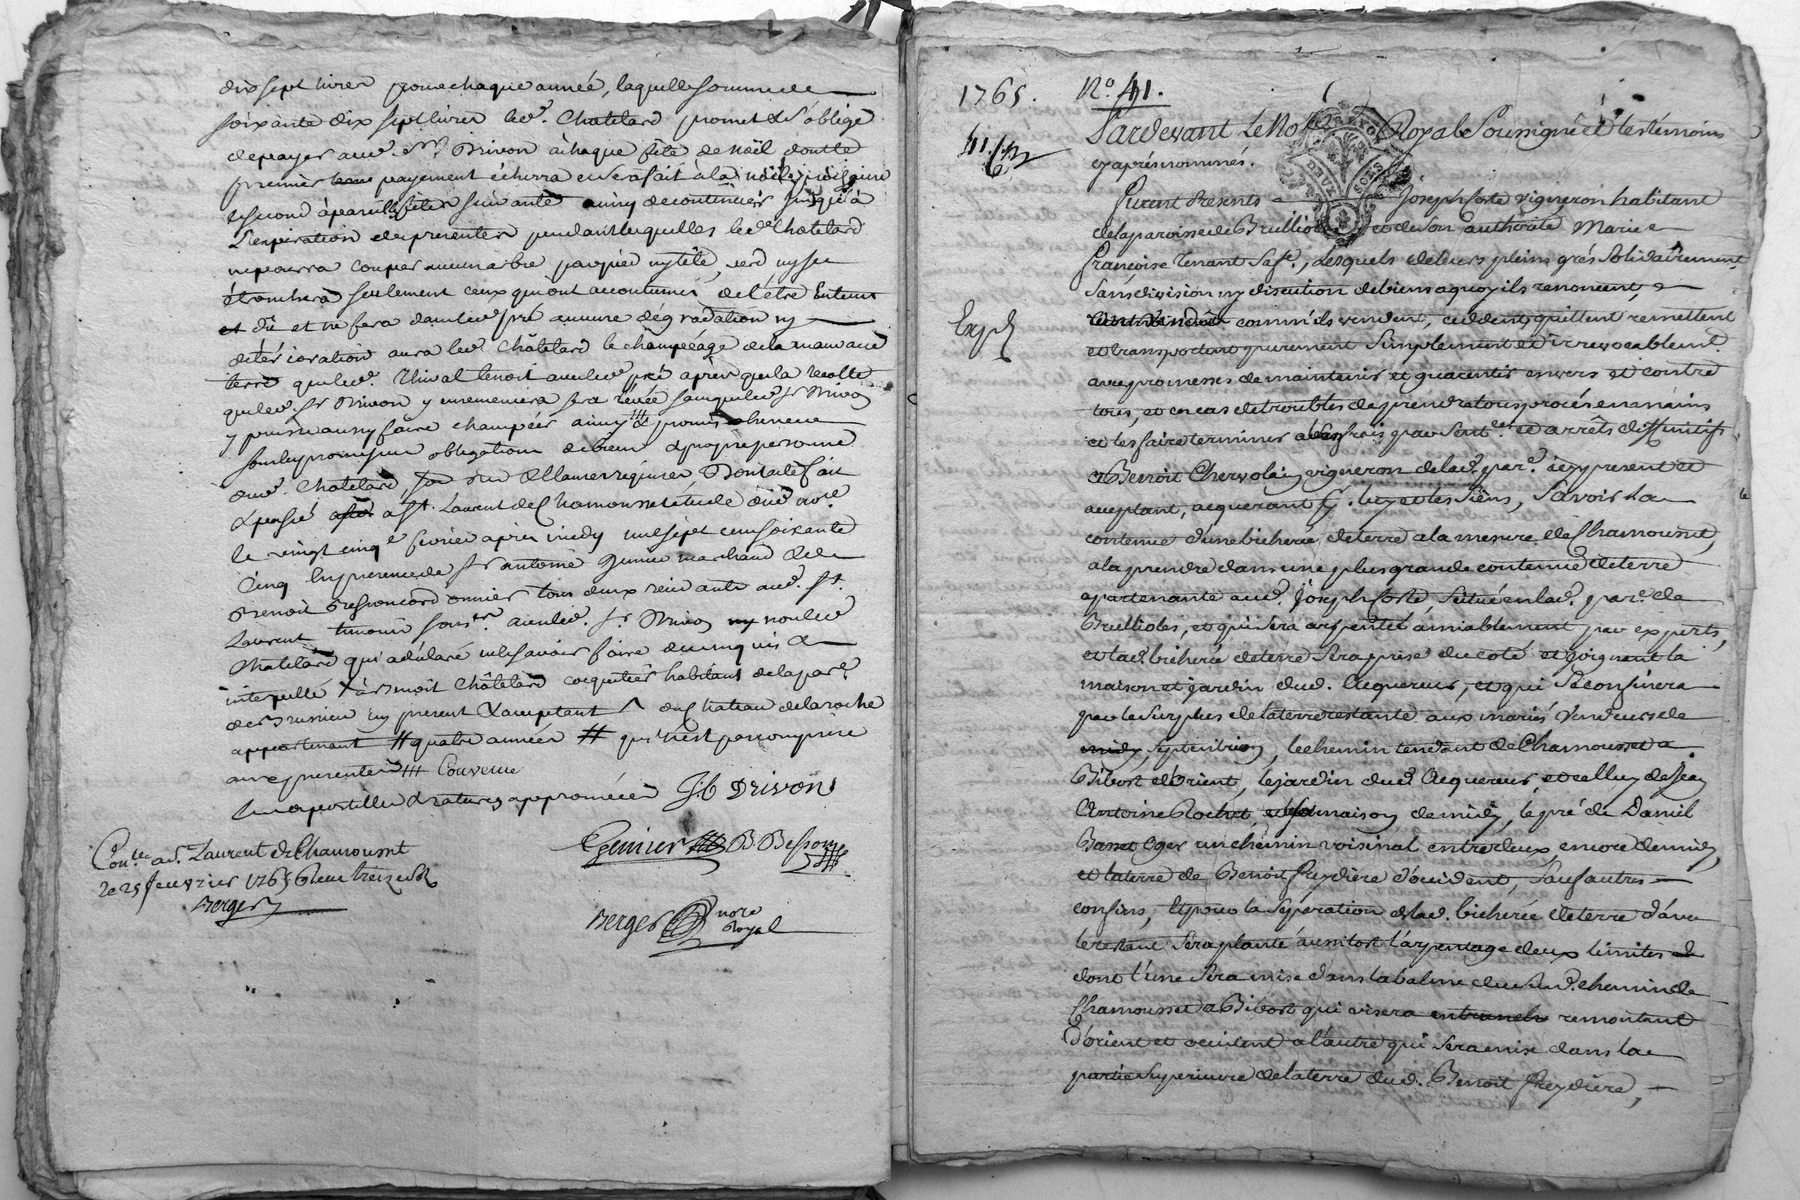 dix sept livres pour chaque année, laquelle somme de
soixante dix sept livres led. Chatelard promet et s'oblige
de payer aud. Sr. Drivon à chaque fête de noël dont le
premier payement écherra et sera fait à la noël prochaine
le second à pareille fête suivante ainsy de continuer jusqu'à
l'expiration des presentes pendant lesquelles led. Chatelard
ne pourra couper aucun arbre par pied ny tête, et ny
ébranchera seulement ceux qui ont accoutumés de l'être
et ne fera dans led. pré aucune dégradation ny
déterioration aura led. Châtelard le champéage de la mauvaise
terre que led. Thival tenoit avec led. pré après que la recolte
que led. Sr Drivon y ensemencera sera levée sans que led. Sr Drivon
y puisse aussy faire champéér ainsy
sous les promesses obligations de biens propre personne
dud. Chatelard Dont acte fait
et passé à St. Laurent de Chamousset étude dud. nore.
le vingt cinq fevrier après midy mil sept cens soixante
Cinq En presence de Sr antoine Genier marchand et de
Benoit Besson tous deux residants aud. St.
Laurent temoins soussnés avec led. Sr Drivon non led.
Chatelard qui a déclaré ne savoir faire de ce enquis et
interpellé Benoit Châtelard coquetier habitant de la par.
de Brussieu cy present et acceptant du Chateau de la roche
appartenant # quatre années # qui n'est pas comprise
aux presentes ### Couverne
appostilles et ratures approuvées J b DRivon
Genier B Besson
Conlle a St. Laurent de Chamousset
le 25 feuvrier 1765 Reçu treize sols
Berger
Berger nore
Royal
1765.
No. 41.
41.
Pardevant Le No Royal Soussigné et les témoins
cy après nommés.
Furent Presents Joseph Coste vigneron habitant
de la paroisse de Brullioles et de son authorité Marie
Françoise Venant Sa fe., Lesquels de leurs pleins grés Solidairement
Sans division ny discution de biens a quoy ils renoncent,
Expd
comm'ils vendent, ceddent, quittent remettent
et transportent purement Simplement et irrevocablemt.
avec promesses de maintenir et guarentir envers et contre
tous, et en cas de troubles de prendre tous procés en mains
et les faire terminer a leurs frais par Sentce. et arrêts deffinitifs
a Benoit Chervolin vigneron de lad. parr. icy present et
acceptant, acquerant p. luy et les Siens, Savoir La
contenue d'une bicherée de terre a la mesure de Chamousset,
a la prendre dans une plus grande contenue de terre
apartenante aud. Joseph Coste, Scituée en lad. parr. de
Brullioles, et qui Sera arpentée amiablement par experts,
et lad. bicherée de terre Sera prise du coté et joignant la
maison et jardin dud. Acquereur, et qui Se confinera
par le Surplus de la terre restante aux mariés Vendeurs de
septentrion, le chemin tendant de Chamousset a
Bibost d'Orient, le jardin dud. Acquereur, et celluy de Jean
Antoine Rochet maison de midy, le pré de Daniel
un chemin voisinal entredeux, encore de midy,
et la terre de Benoit Freydiere d'occident, Sauf autres
confins, Et pour la Séparation de lad. bicherée de terre d'avec
le restant Sera planté aussitost l'arpentage deux limites
dont l'une Sera mise dans la balme dud. chemin de
Chamousset a Bibost qui visera remontant
d'orient et occident a l'autre qui Sera mise dans la
partie Superieure de la terre dud. Benoit Freydiere,